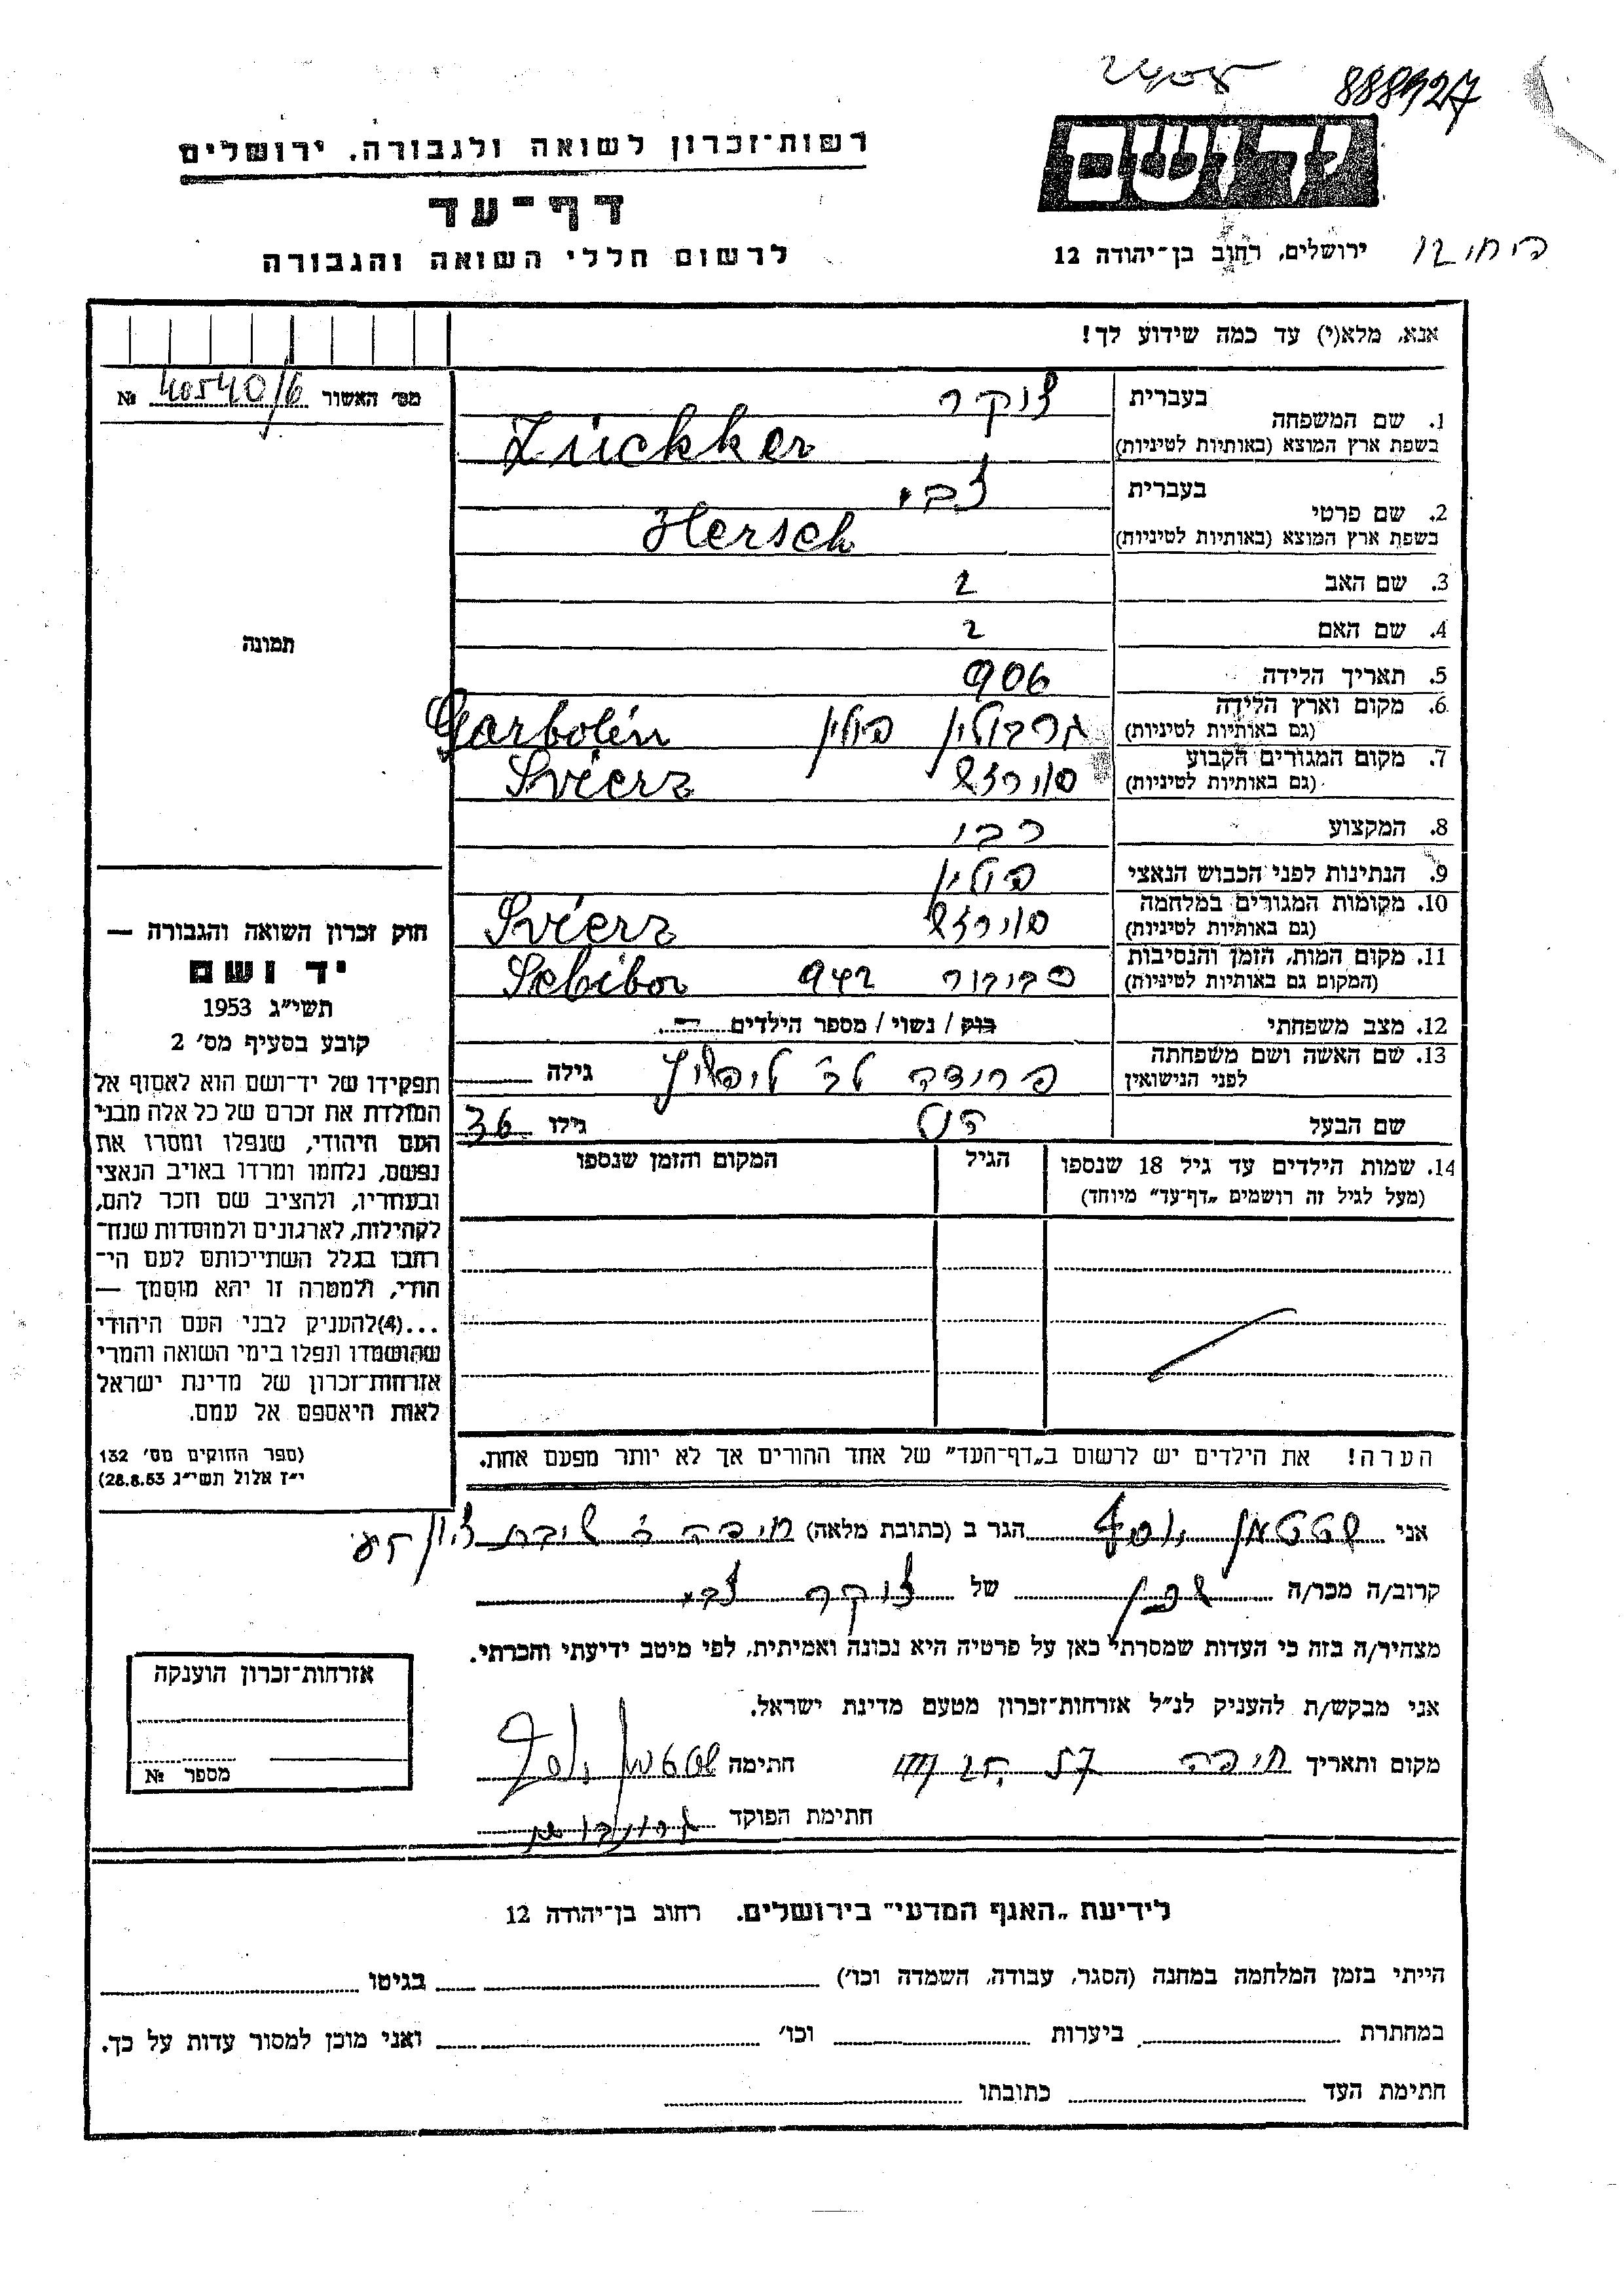 888427
רשות־זכרון לשואה ולגבורה. ירושלים
יד ושם
דף־עד
לרשום חללי השואה והגבורה
ירושלים, רחוב בן־יהודה 12
אנא, מלא(י) עד כמה שידוע לך!
מס׳ האשור 40540/6 №
1. שם המשפחה
בעברית צוקר
בשפת ארץ המוצא (באותיות לטיניות) Zückker
2. שם פרטי
בעברית צבי
בשפת ארץ המוצא (באותיות לטיניות) Hersch
3. שם האב ?
4. שם האם ?
תמונה
5. תאריך הלידה 906
6. מקום וארץ הלידה
(גם באותיות לטיניות) גרבולין פולין Garbolén
7. מקום המגורים הקבוע
(גם באותיות לטיניות) סוירזש Svierz
8. המקצוע רבי
9. הנתינות לפני הכבוש הנאצי פולין
10. מקומות המגורים במלחמה
(גם באותיות לטיניות) סוירזש Svierz
11. מקום המות, הזמן והנסיבות
(המקום גם באותיות לטיניות) סביבור 942 Sebibor
12. מצב משפחתי רווק / נשוי / מספר הילדים
13. שם האשה ושם משפחתה
לפני הנישואין פרידה לב׳ ליפשיץ גילה
שם הבעל גילו 36
14. שמות הילדים עד גיל 18 שנספו
(מעל לגיל זה רושמים „דף־עד״ מיוחד)
הגיל
המקום והזמן שנספו
חוק זכרון השואה והגבורה —
יד ושם
תשי״ג 1953
קובע בסעיף מס׳ 2
תפקידו של יד־ושם הוא לאסוף אל
המולדת את זכרם של כל אלה מבני
העם היהודי, שנפלו ומסרו את
נפשם, נלחמו ומרדו באויב הנאצי
ובעוזריו, ולהציב שם וזכר להם,
לקהילות, לארגונים ולמוסדות שנח־
רבו בגלל השתייכותם לעם הי־
הודי, ולמטרה זו יהא מוסמך —
...(4)להעניק לבני העם היהודי
שהושמדו ונפלו בימי השואה והמרי
אזרחות־זכרון של מדינת ישראל
לאות היאספם אל עמם.
(ספר החוקים מס׳ 132
י״ז אלול תשי״ג 28.8.53)
הערה! את הילדים יש לרשום ב„דף־העד״ של אחד ההורים אך לא יותר מפעם אחת.
אני שטטמן יוסף הגר ב (כתובת מלאה) חיפה שיבת ציון
קרוב/ה מכר/ה שכן של צוקר צבי
מצהיר/ה בזה כי העדות שמסרתי כאן על פרטיה היא נכונה ואמיתית, לפי מיטב ידיעתי והכרתי.
אני מבקש/ת להעניק לנ״ל אזרחות־זכרון מטעם מדינת ישראל.
מקום ותאריך חיפה 57 חתימה שטטמן יוסף
חתימת הפוקד
אזרחות־זכרון הוענקה
מספר №
לידיעת „האגף המדעי״ בירושלים. רחוב בן־יהודה 12
הייתי בזמן המלחמה במחנה (הסגר, עבודה, השמדה וכו׳) בגיטו
במחתרת ביערות וכו׳ ואני מוכן למסור עדות על כך.
חתימת העד כתובתו